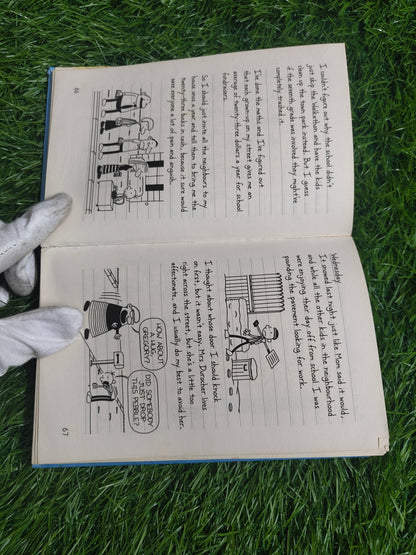 I couldn't figure out why the school didn't
just skip the Walkathon and have the kids
clean up the town park instead. But I guess
if the seventh grade was involved they might've
completely trashed it.
I've done the maths and I've figured out
that each grown-up on my street gives me an
average of twenty-three dollars a year for school
fundraisers.
So I should just invite all the neighbours to my
house once a year and tell them to bring me the
twenty-three bucks in cash, because it sure would
save everyone a lot of pain and anguish.
66
Wednesday
It snowed last night, just like Mom said it would,
and while all the other kids in the neighbourhood
were enjoying their day off from school I was
pounding the pavement looking for work.
I thought about whose door I should knock
on first, but it wasn't easy. Mrs Durocher lives
right across the street, but she's a little too
affectionate, and I usually do my best to avoid her.
HOW ABOUT
A HUG,
GREGORY?
DID SOMEBODY
JUST DROP
THIS PEBBLE?
67